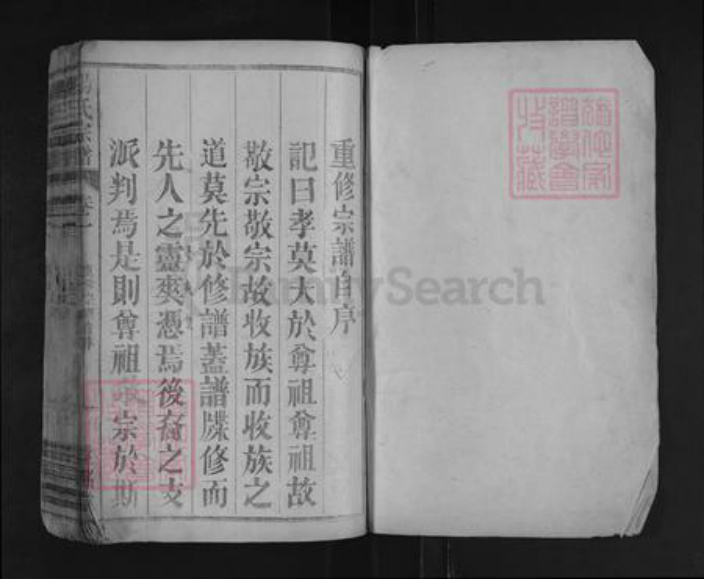 重修宗譜自序
記曰孝莫大於尊祖尊祖故
敬宗敬宗故收族而收族之
道莫先於修譜蓋譜牒修而
先人之靈爽憑焉後裔之支
派判焉是則尊祖敬宗於斯
氏宗譜
卷一
FamilySearch